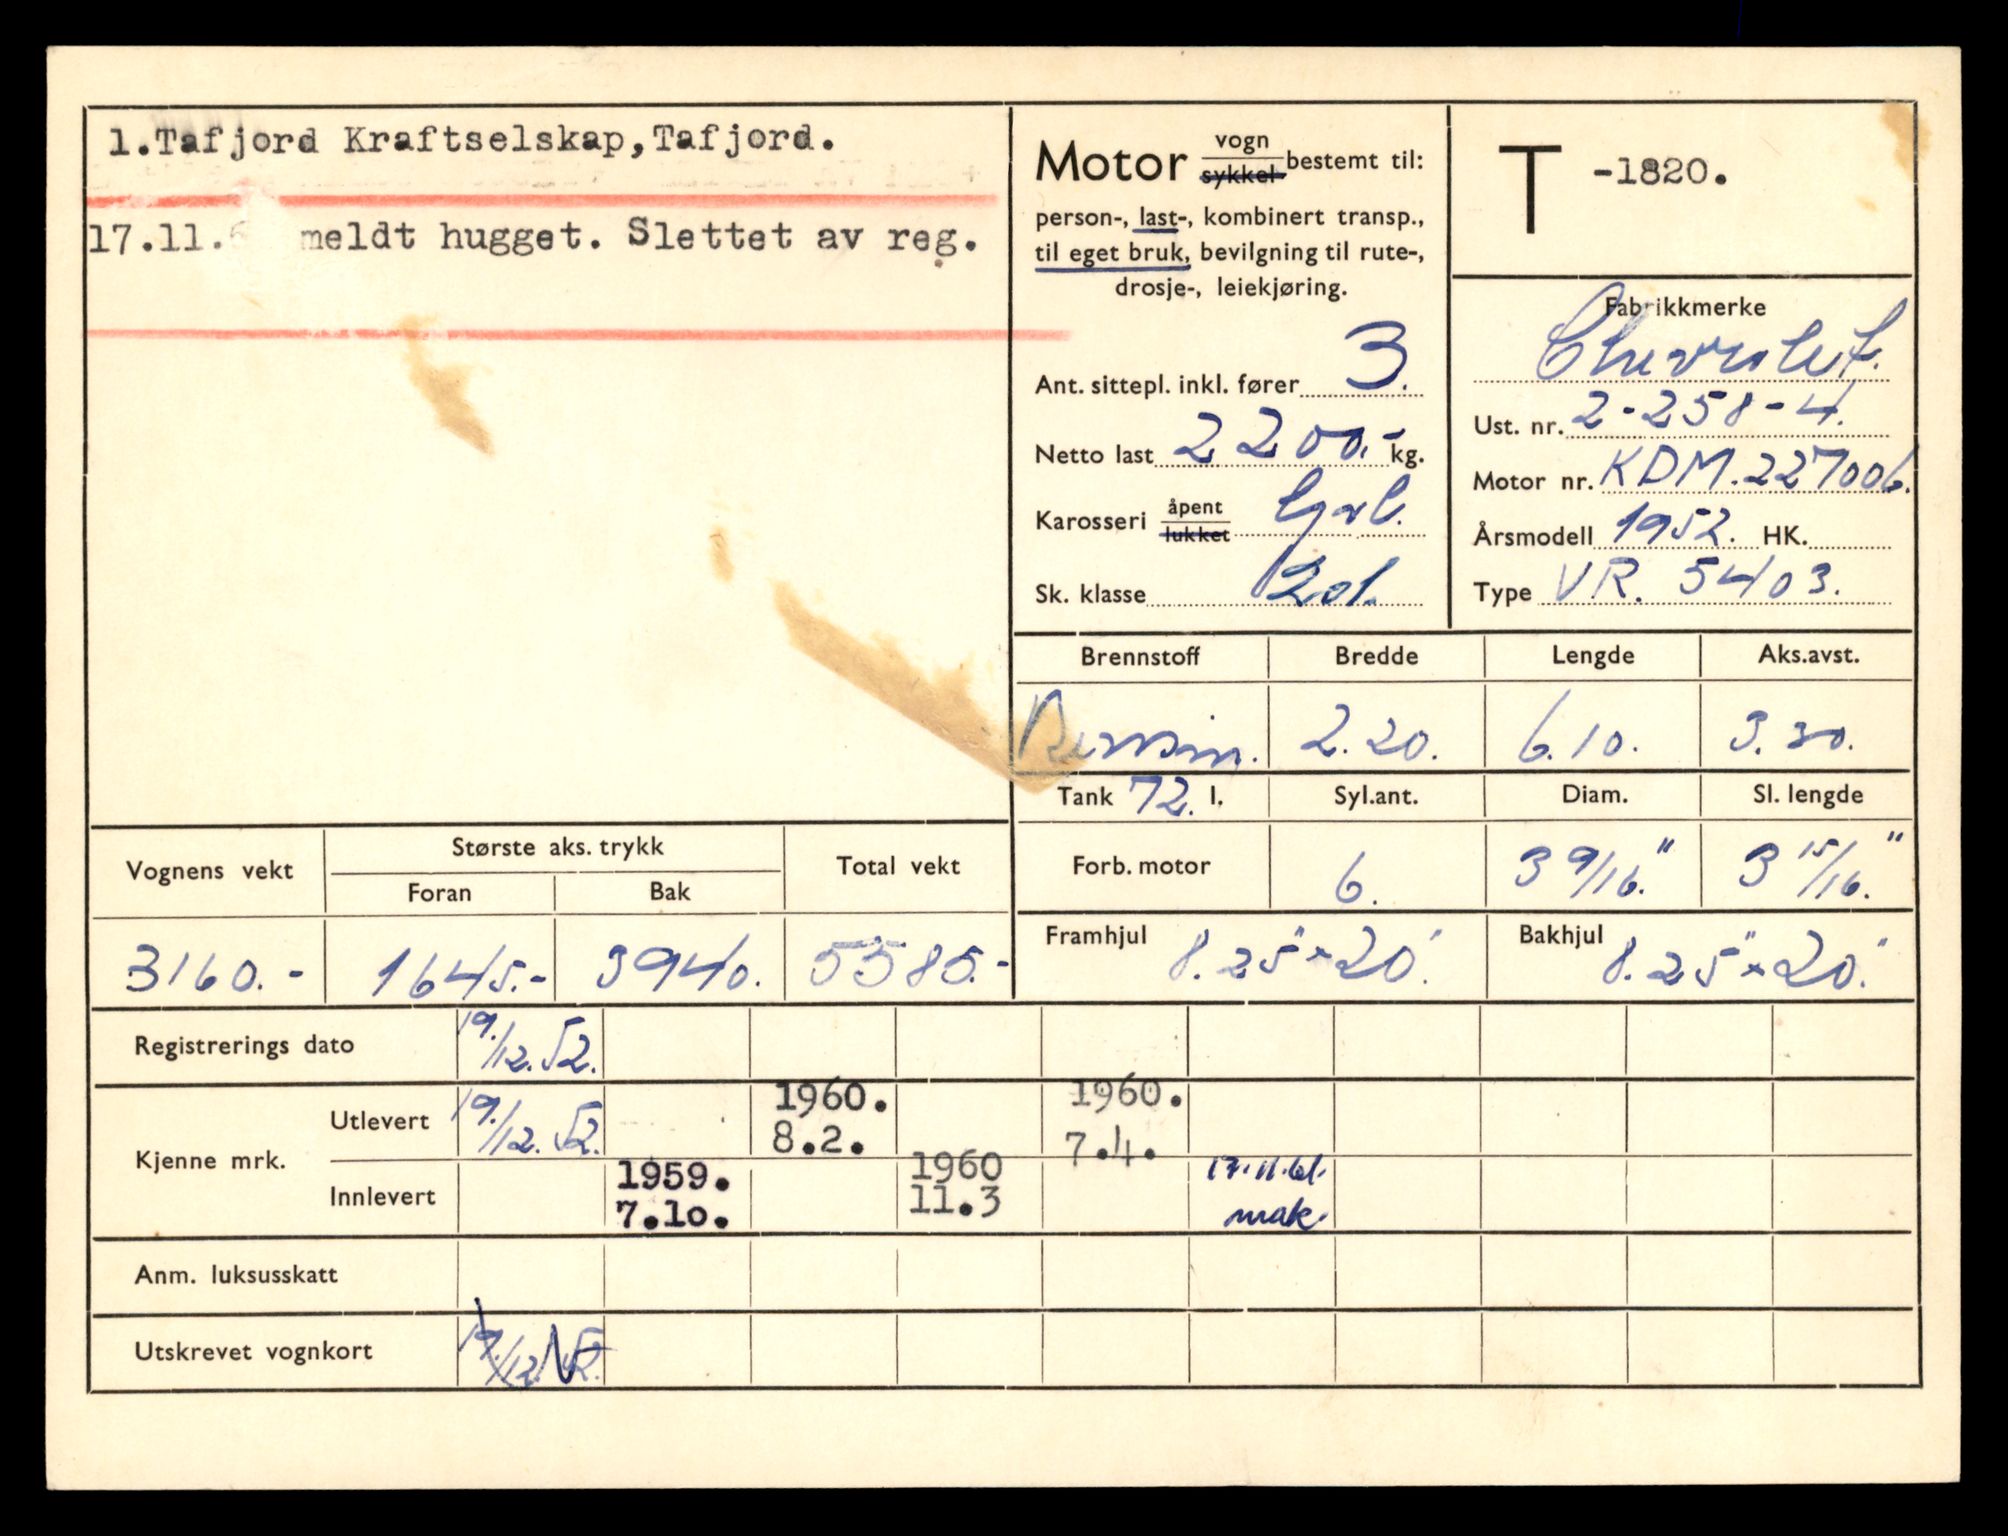 1.Tafjord Kraftselskap,Tafjord.
17.11.6 meldt hugget. Slettet av reg.
Motor vogn sykkel bestemt til:
person-, last-, kombinert transp.,
til eget bruk, bevilgning til rute-,
drosje-, leiekjøring.
Ant. sittepl. inkl. fører 3.
Netto last 2200.- kg.
Karosseri åpent lukket
Sk. klasse 201.
T -1820.
Fabrikkmerke
Chevrolet.
Ust. nr. 2-258-4.
Motor nr. KDM.227006.
Årsmodell 1952. HK.
Type VR. 5403.
Brennstoff Bredde Lengde Aks.avst.
Bensin. 2.20. 6.10. 3.30.
Tank 72. l. Syl.ant. Diam. Sl. lengde
Forb. motor 6. 3 9/16." 3 15/16."
Framhjul 8.25"x20" Bakhjul 8.25"x20"
Vognens vekt Største aks. trykk Total vekt
Foran Bak
3160.- 1645.- 3940. 5585.-
Registrerings dato 19./12.52.
Kjenne mrk.
Utlevert 19./12.52. 1960. 8.2. 1960. 7.4.
Innlevert 1959. 7.10. 1960 11.3 17.11.61. mak.
Anm. luksusskatt
Utskrevet vognkort 19./12.52.